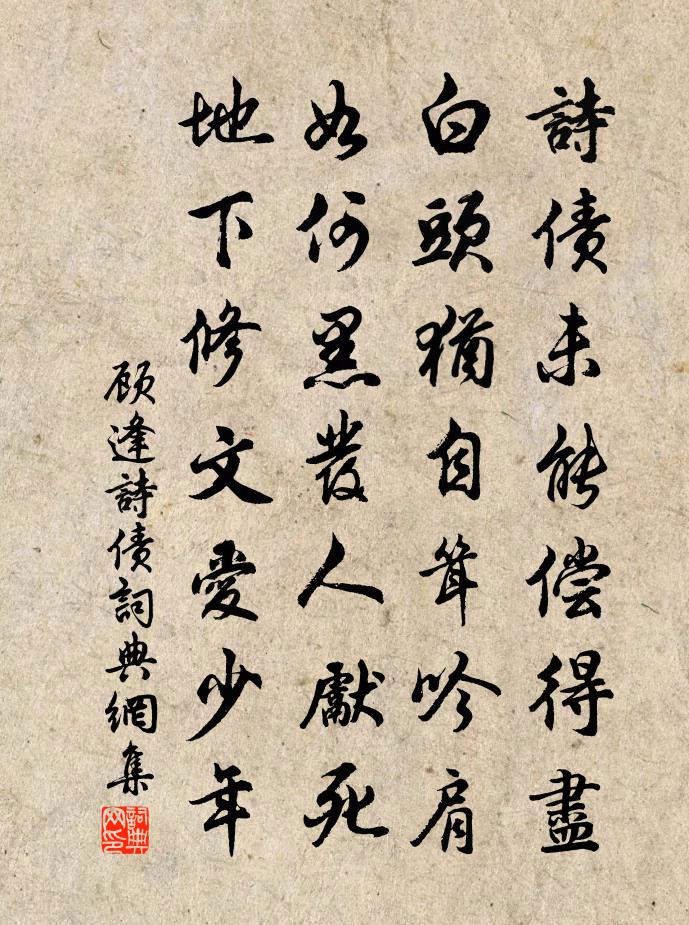 詩債未能偿得盡
白頭猶自耸吟肩
如何黑發人獻死
地下修文愛少年
顾逢詩债詞典網集
詞典
网印